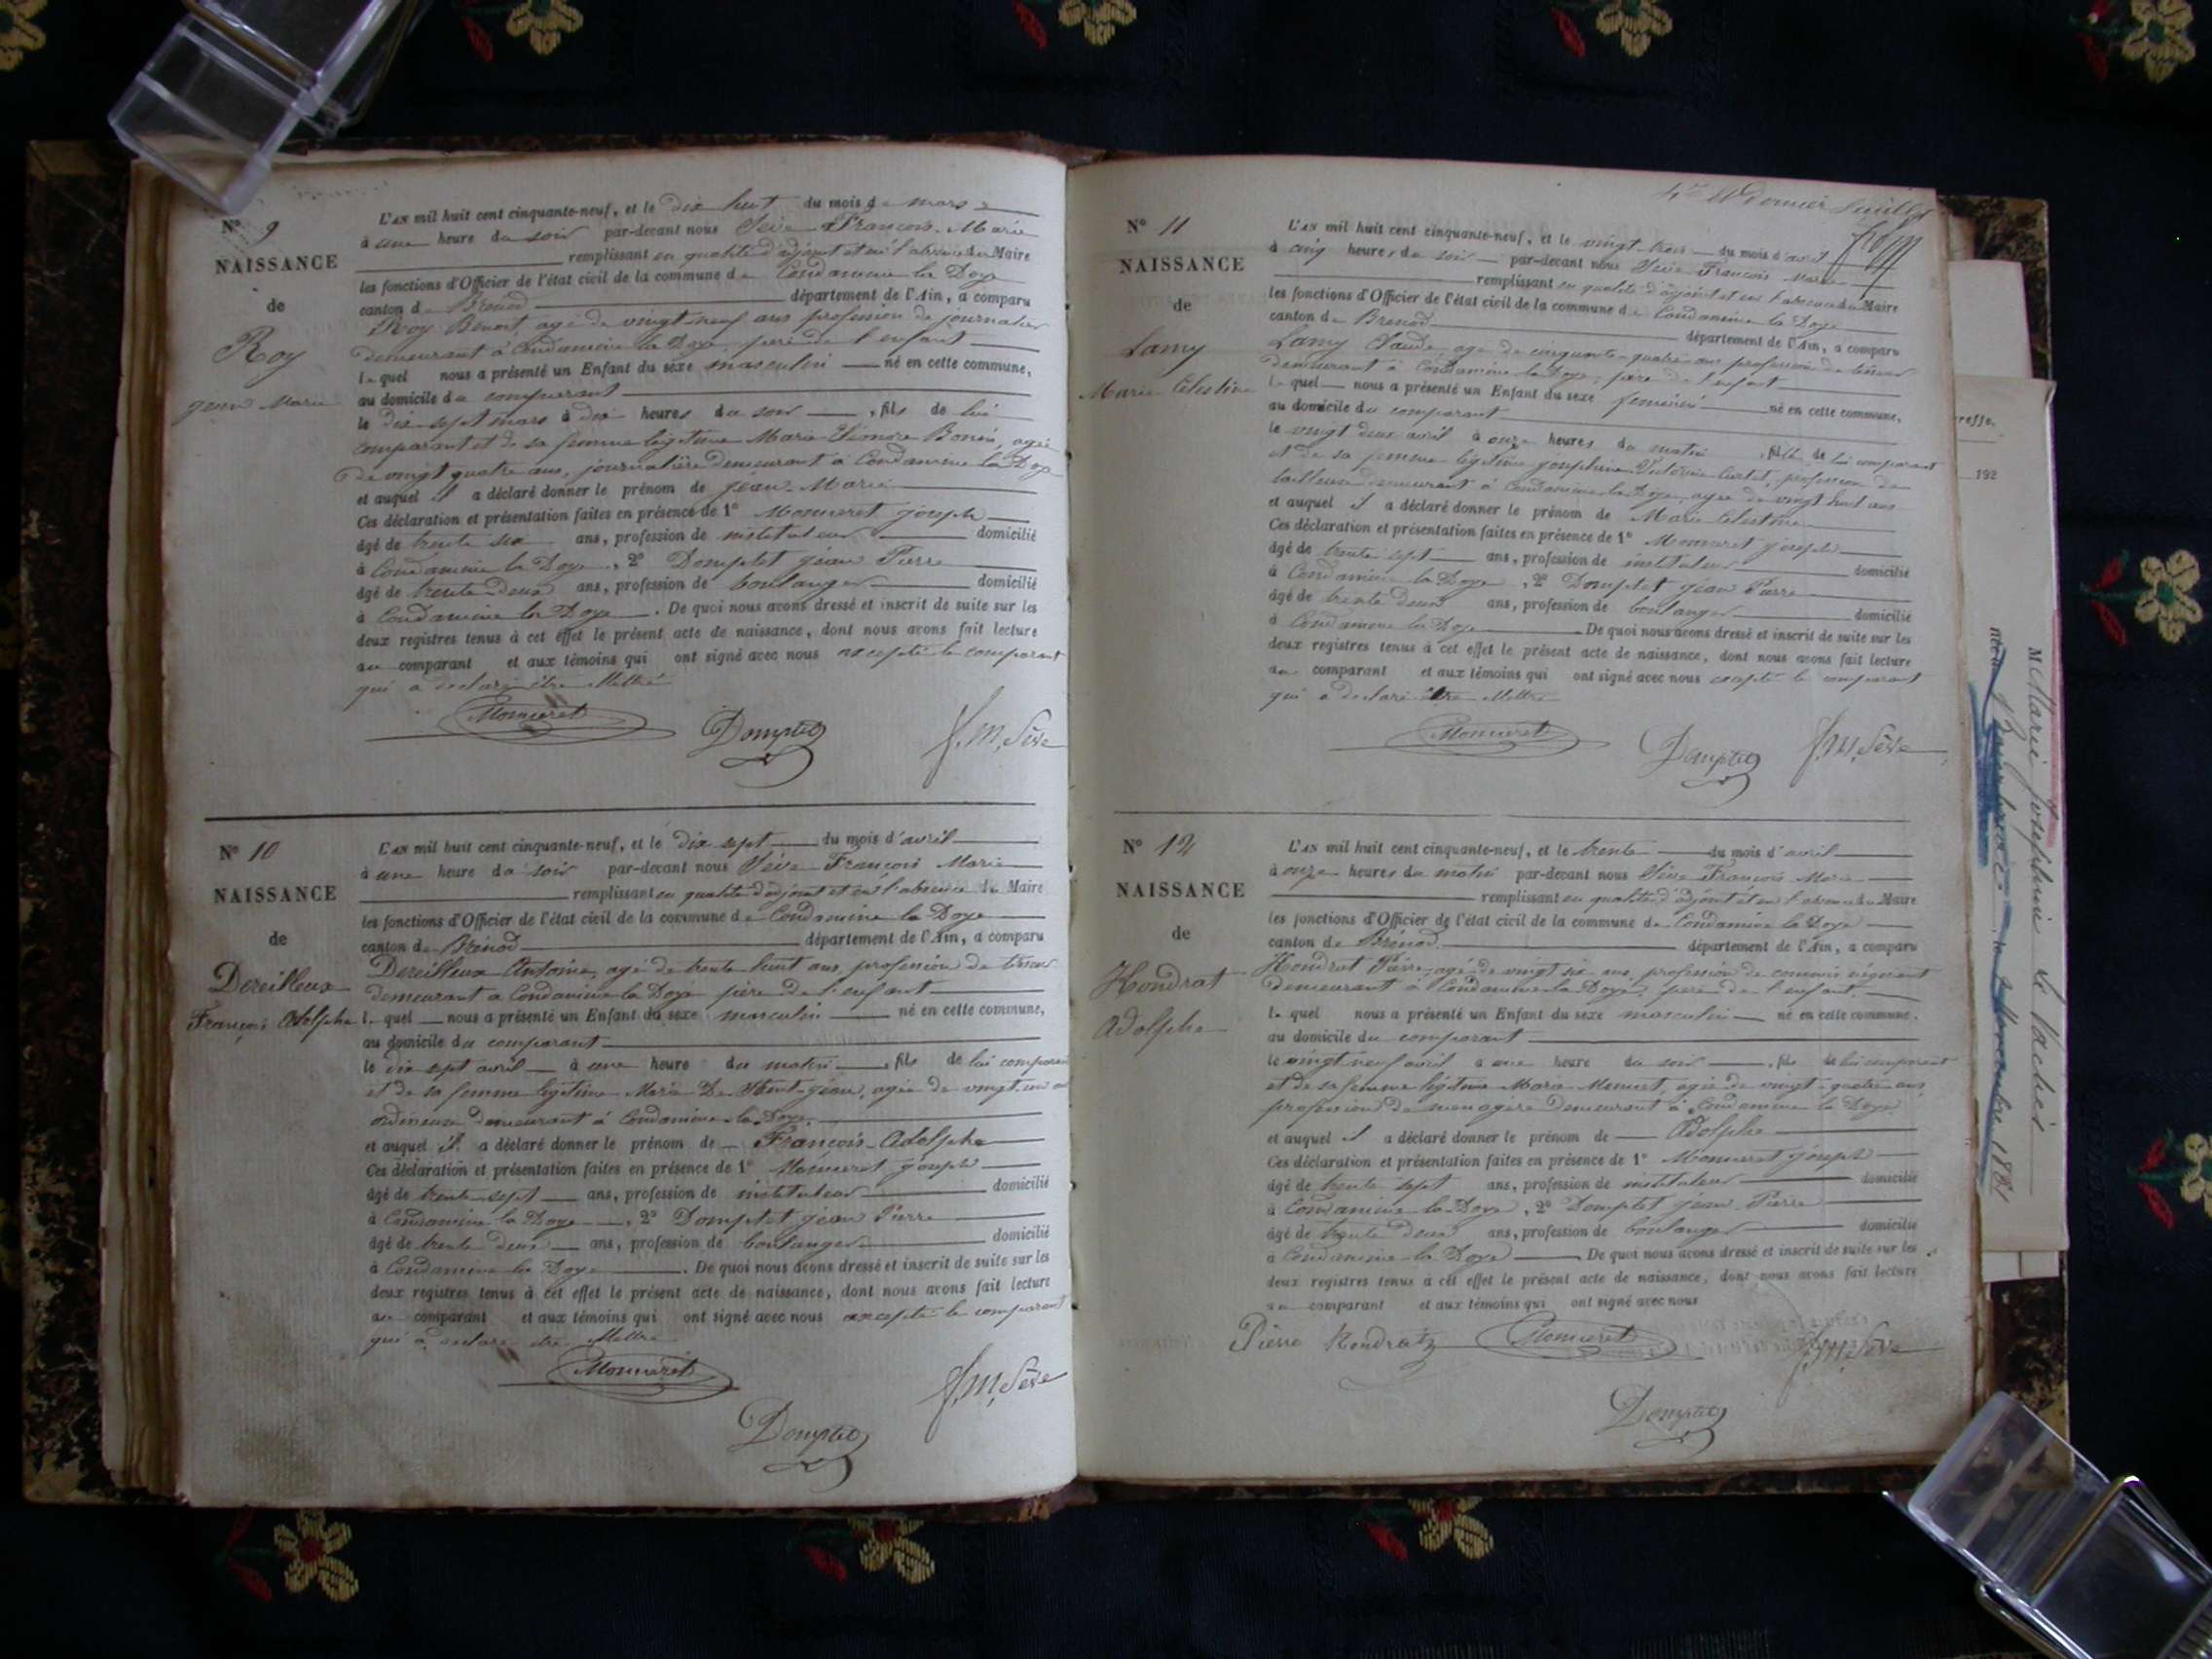 N° 9
NAISSANCE
de
Roy
Jean Marie
L'AN mil huit cent cinquante-neuf, et le dix huit du mois de mars
à une heure du soir par-devant nous Sève François Marie
remplissant en qualité d'adjoint et en l'absence du Maire
les fonctions d'Officier de l'état civil de la commune de Condamine la Doye
canton de Brenod département de l'Ain, a comparu
Roy Benoit, agé de vingt-neuf ans profession de journalier
demeurant à Condamine la Doye père de l'enfant
lequel nous a présenté un Enfant du sexe masculin né en cette commune,
au domicile du comparant
le dix-sept mars à dix heures du soir, fils de lui
comparant et de sa femme légitime Marie Eléonore, agée
de vingt quatre ans, journalière demeurant à Condamine la Doye
et auquel il a déclaré donner le prénom de Jean-Marie
Ces déclaration et présentation faites en présence de 1° Monneret Joseph
âgé de trente six ans, profession de instituteur domicilié
à Condamine la Doye, 2° Domptet Jean Pierre
âgé de trente deux ans, profession de boulanger domicilié
à Condamine la Doye. De quoi nous avons dressé et inscrit de suite sur les
deux registres tenus à cet effet le présent acte de naissance, dont nous avons fait lecture
au comparant et aux témoins qui ont signé avec nous excepté le comparant
qui a déclaré être illettré
Monneret Domptet f. m. Sève
N° 10
NAISSANCE
de
Dereilleux
François Adolphe
L'AN mil huit cent cinquante-neuf, et le dix sept du mois d'avril
à une heure du soir par-devant nous Sève François Marie
remplissant en qualité d'adjoint et en l'absence du Maire
les fonctions d'Officier de l'état civil de la commune de Condamine la Doye
canton de Brénod département de l'Ain, a comparu
Dereilleux Antoine, agé de trente huit ans, profession de tisseur
demeurant a Condamine la Doye père de l'enfant
lequel nous a présenté un Enfant du sexe masculin né en cette commune,
au domicile du comparant
le dix sept avril à une heure du matin, fils de lui comparant
et de sa femme légitime Marie, agée de vingt
demeurant à Condamine la Doye.
et auquel il a déclaré donner le prénom de François-Adolphe
Ces déclaration et présentation faites en présence de 1° Monneret Joseph
âgé de trente-sept ans, profession de instituteur domicilié
à Condamine la Doye, 2° Domptet Jean Pierre
âgé de trente deux ans, profession de boulanger domicilié
à Condamine la Doye. De quoi nous avons dressé et inscrit de suite sur les
deux registres tenus à cet effet le présent acte de naissance, dont nous avons fait lecture
au comparant et aux témoins qui ont signé avec nous excepté le comparant
qui a déclaré être illettré
Monneret f. m. Sève
Domptet
Dernier feuillet
N° 11
NAISSANCE
de
Lamy
Marie Célestine
L'AN mil huit cent cinquante-neuf, et le vingt-trois du mois d'avril
à cinq heures du soir par-devant nous Sève François Marie
remplissant en qualité d'adjoint et en l'absence du Maire
les fonctions d'Officier de l'état civil de la commune de Condamine la Doye
canton de Brenod département de l'Ain, a comparu
Lamy Claude, age de cinquante-quatre ans profession de tisseur
demeurant à Condamine la Doye, père de l'enfant
lequel nous a présenté un Enfant du sexe féminin né en cette commune,
au domicile du comparant
le vingt deux avril à onze heures du matin, fille de lui comparant
et de sa femme légitime Joséphine, profession de
tailleuse demeurant à Condamine la Doye, agée de vingt huit ans
et auquel il a déclaré donner le prénom de Marie Célestine
Ces déclaration et présentation faites en présence de 1° Monneret Joseph
âgé de trente sept ans, profession de instituteur domicilié
à Condamine la Doye, 2° Domptet Jean Pierre
âgé de trente deux ans, profession de boulanger domicilié
à Condamine la Doye De quoi nous avons dressé et inscrit de suite sur les
deux registres tenus à cet effet le présent acte de naissance, dont nous avons fait lecture
au comparant et aux témoins qui ont signé avec nous excepté le comparant
qui a déclaré être illettré
Monneret Domptet f. m. Sève
N° 12
NAISSANCE
de
Hondrat
Adolphe
L'AN mil huit cent cinquante-neuf, et le trente du mois d'avril
à onze heures du matin par-devant nous Sève François Marie
remplissant en qualité d'adjoint et en l'absence du Maire
les fonctions d'Officier de l'état civil de la commune de Condamine la Doye
canton de Brénod département de l'Ain, a comparu
Hondrat Pierre, agé de vingt six ans, profession de commis négociant
demeurant à Condamine la Doye, père de l'enfant.
lequel nous a présenté un Enfant du sexe masculin né en cette commune.
au domicile du comparant
le vingt neuf avril à une heure du soir, fils de lui comparant
et de sa femme légitime Marie, agée de vingt-quatre ans
profession de ménagère demeurant à Condamine la Doye
et auquel il a déclaré donner le prénom de Adolphe
Ces déclaration et présentation faites en présence de 1° Monneret Joseph
âgé de trente sept ans, profession de instituteur domicilié
à Condamine la Doye, 2° Domptet Jean Pierre
âgé de trente deux ans, profession de boulanger domicilié
à Condamine la Doye De quoi nous avons dressé et inscrit de suite sur les
deux registres tenus à cet effet le présent acte de naissance, dont nous avons fait lecture
au comparant et aux témoins qui ont signé avec nous
Pierre Kondratz Monneret f. m. Sève
Domptet
192
M Marie Joséphine
1881